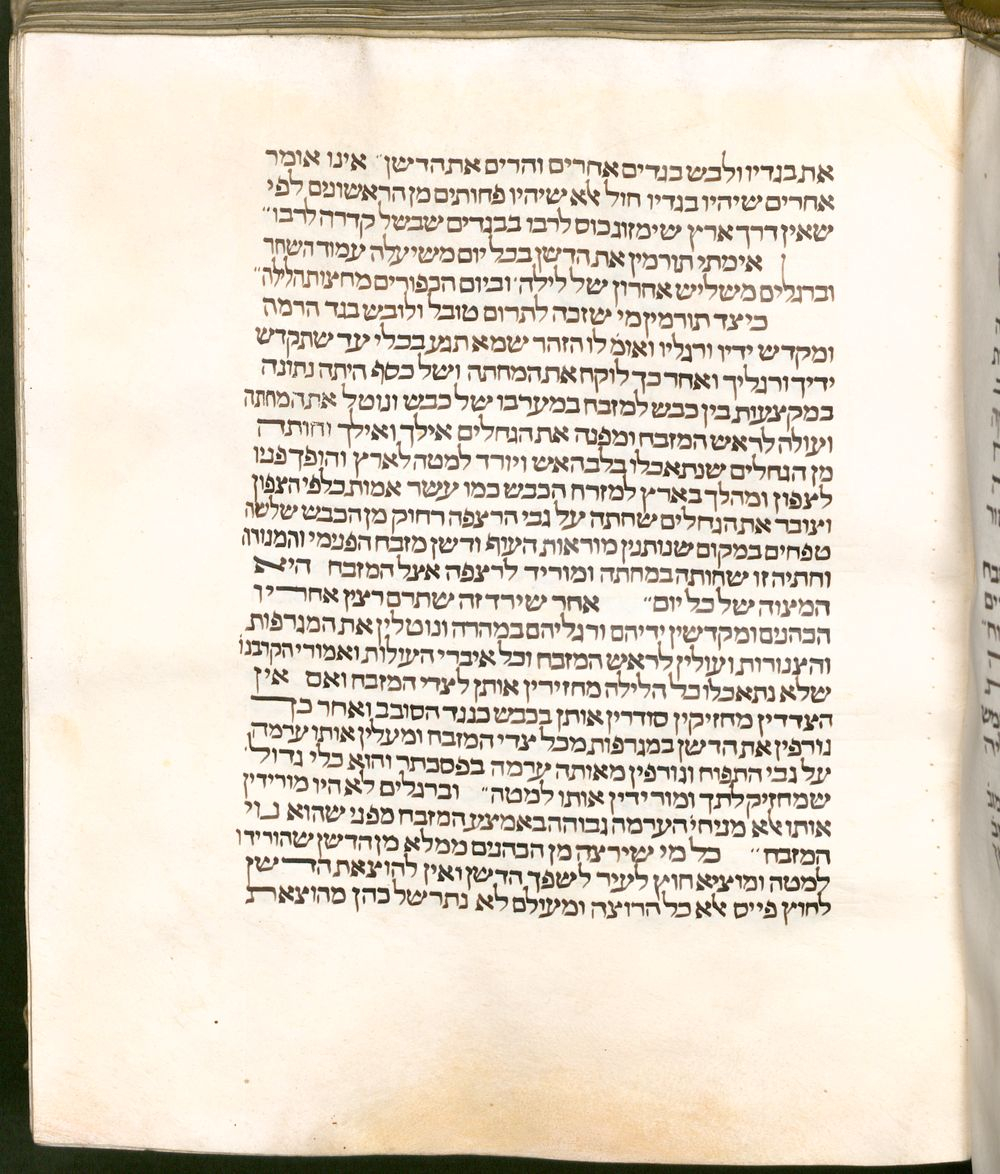 את בגדיו ולבש בגדים אחרים והרים את הדשן״ אינו אומר
אחרים שיהיו בגדיו חול אלא שיהיו פחותים מן הראשונים לפי
שאין דרך ארץ שימזוג כוס לרבו בבגדים שבשל קדרה לרבו״
אימתי תורמין את הדשן בכל יום משיעלה עמוד השחר
וברגלים משליש אחרון של לילה וביום הכפורים מחצות הלילה״
כיצד תורמין מי שזכה לתרום טובל ולובש בגד הרמה
ומקדש ידיו ורגליו ואומ׳ לו הזהר שמא תגע בכלי עד שתקדש
ידיך ורגליך ואחר כך לוקח את המחתה ושל כסף היתה נתונה
במקצעות בין כבש למזבח במערבו של כבש ונוטל את המחתה
ועולה לראש המזבח ומפנה את הגחלים אילך ואילך וחותה
מן הגחלים שנתאכלו בלב האש ויורד למטה לארץ והופך פניו
לצפון ומהלך בארץ למזרח הכבש כמו עשר אמות כלפי הצפון
וצובר את הגחלים שחתה על גבי הרצפה רחוק מן הכבש שלשה
טפחים במקום שנותנין מוראות העוף ודשן מזבח הפנימי והמנורה
וחתיה זו שחותה במחתה ומוריד לרצפה אצל המזבח היא
המצוה של כל יום״ אחר שירד זה שתרם רצין אחרין
הכהנים ומקדשין ידיהם ורגליהם במהרה ונוטלין את המגרפות
והצנורות ועולין לראש המזבח וכל איברי העולות ואמורי הקרבנו׳
שלא נתאכלו כל הלילה מחזירין אותן לצדי המזבח ואם אין
הצדדין מחזיקין סודרין אותן בכבש כנגד הסובב ואחר כך
גורפין את הדשן במגרפות מכל צדי המזבח ומעלין אותו ערמה
על גבי התפוח וגורפין מאותה ערמה בפסכתר והוא כלי גדול
שמחזיק לתך ומורידין אותו למטה״ וברגלים לא היו מורידין
אותו אלא מניחי׳ הערמה גבוהה באמצע המזבח מפני שהוא נוי
המזבח״ כל מי שירצה מן הכהנים ממלא מן הדשן שהורידו
למטה ומוציא חוץ לעיר לשפך הדשן ואין להוצאת הדשן
לחוץ פייס אלא כל הרוצה ומעולם לא נתרשל כהן מהוצאת